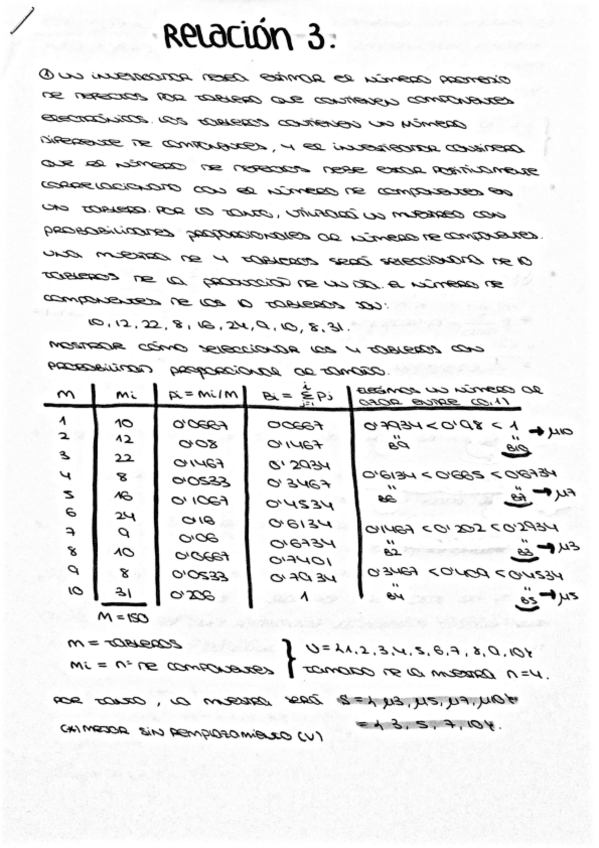 Relación 3.
① UN INVESTIGADOR DESEA ESTIMAR EL NÚMERO PROMEDIO
DE DEFECTOS POR TABLERO QUE CONTIENEN COMPONENTES
ELECTRÓNICOS. LOS TABLEROS CONTIENEN UN NÚMERO
DIFERENTE DE COMPONENTES, Y EL INVESTIGADOR CONSIDERA
QUE EL NÚMERO DE DEFECTOS DEBE ESTAR POSITIVAMENTE
CORRELACIONADO CON EL NÚMERO DE COMPONENTES EN
UN TABLERO. POR LO TANTO, UTILIZARÁ UN MUESTREO CON
PROBABILIDADES PROPORCIONALES AL NÚMERO DE COMPONENTES.
UNA MUESTRA DE 4 TABLEROS SERÁ SELECCIONADA DE 10
TABLEROS DE LA PRODUCCIÓN DE UN DÍA. EL NÚMERO DE
COMPONENTES DE LOS 10 TABLEROS SON:
10, 12, 22, 8, 16, 24, 9, 10, 8, 31.
MOSTRAR CÓMO SELECCIONAR LOS 4 TABLEROS CON
PROBABILIDAD PROPORCIONAL AL TAMAÑO.
m Mi pi = Mi/M Bi = Σ pj ELEGIMOS UN NÚMERO AL AZAR ENTRE (0,1)
1 10 0'0667 0'0667 0'7934 < 0'98 < 1 → μ10
2 12 0'08 0'1467 B9 B10
3 22 0'1467 0'2934
4 8 0'0533 0'3467 0'6134 < 0'665 < 0'6734
5 16 0'1067 0'4534 B6 B7 → μ7
6 24 0'16 0'6134
7 9 0'06 0'6734 0'1467 < 0'202 < 0'2934
8 10 0'0667 0'7401 B2 B3 → μ3
9 8 0'0533 0'7934 0'3467 < 0'409 < 0'4534
10 31 0'206 1 B4 B5 → μ5
M = 150
m = TABLEROS } U = {1,2,3,4,5,6,7,8,9,10}
Mi = nº DE COMPONENTES TAMAÑO DE LA MUESTRA n=4.
POR TANTO, LA MUESTRA SERÁ S = {μ3, μ5, μ7, μ10}
= {3, 5, 7, 10}.
SIN REMPLAZAMIENTO (V)